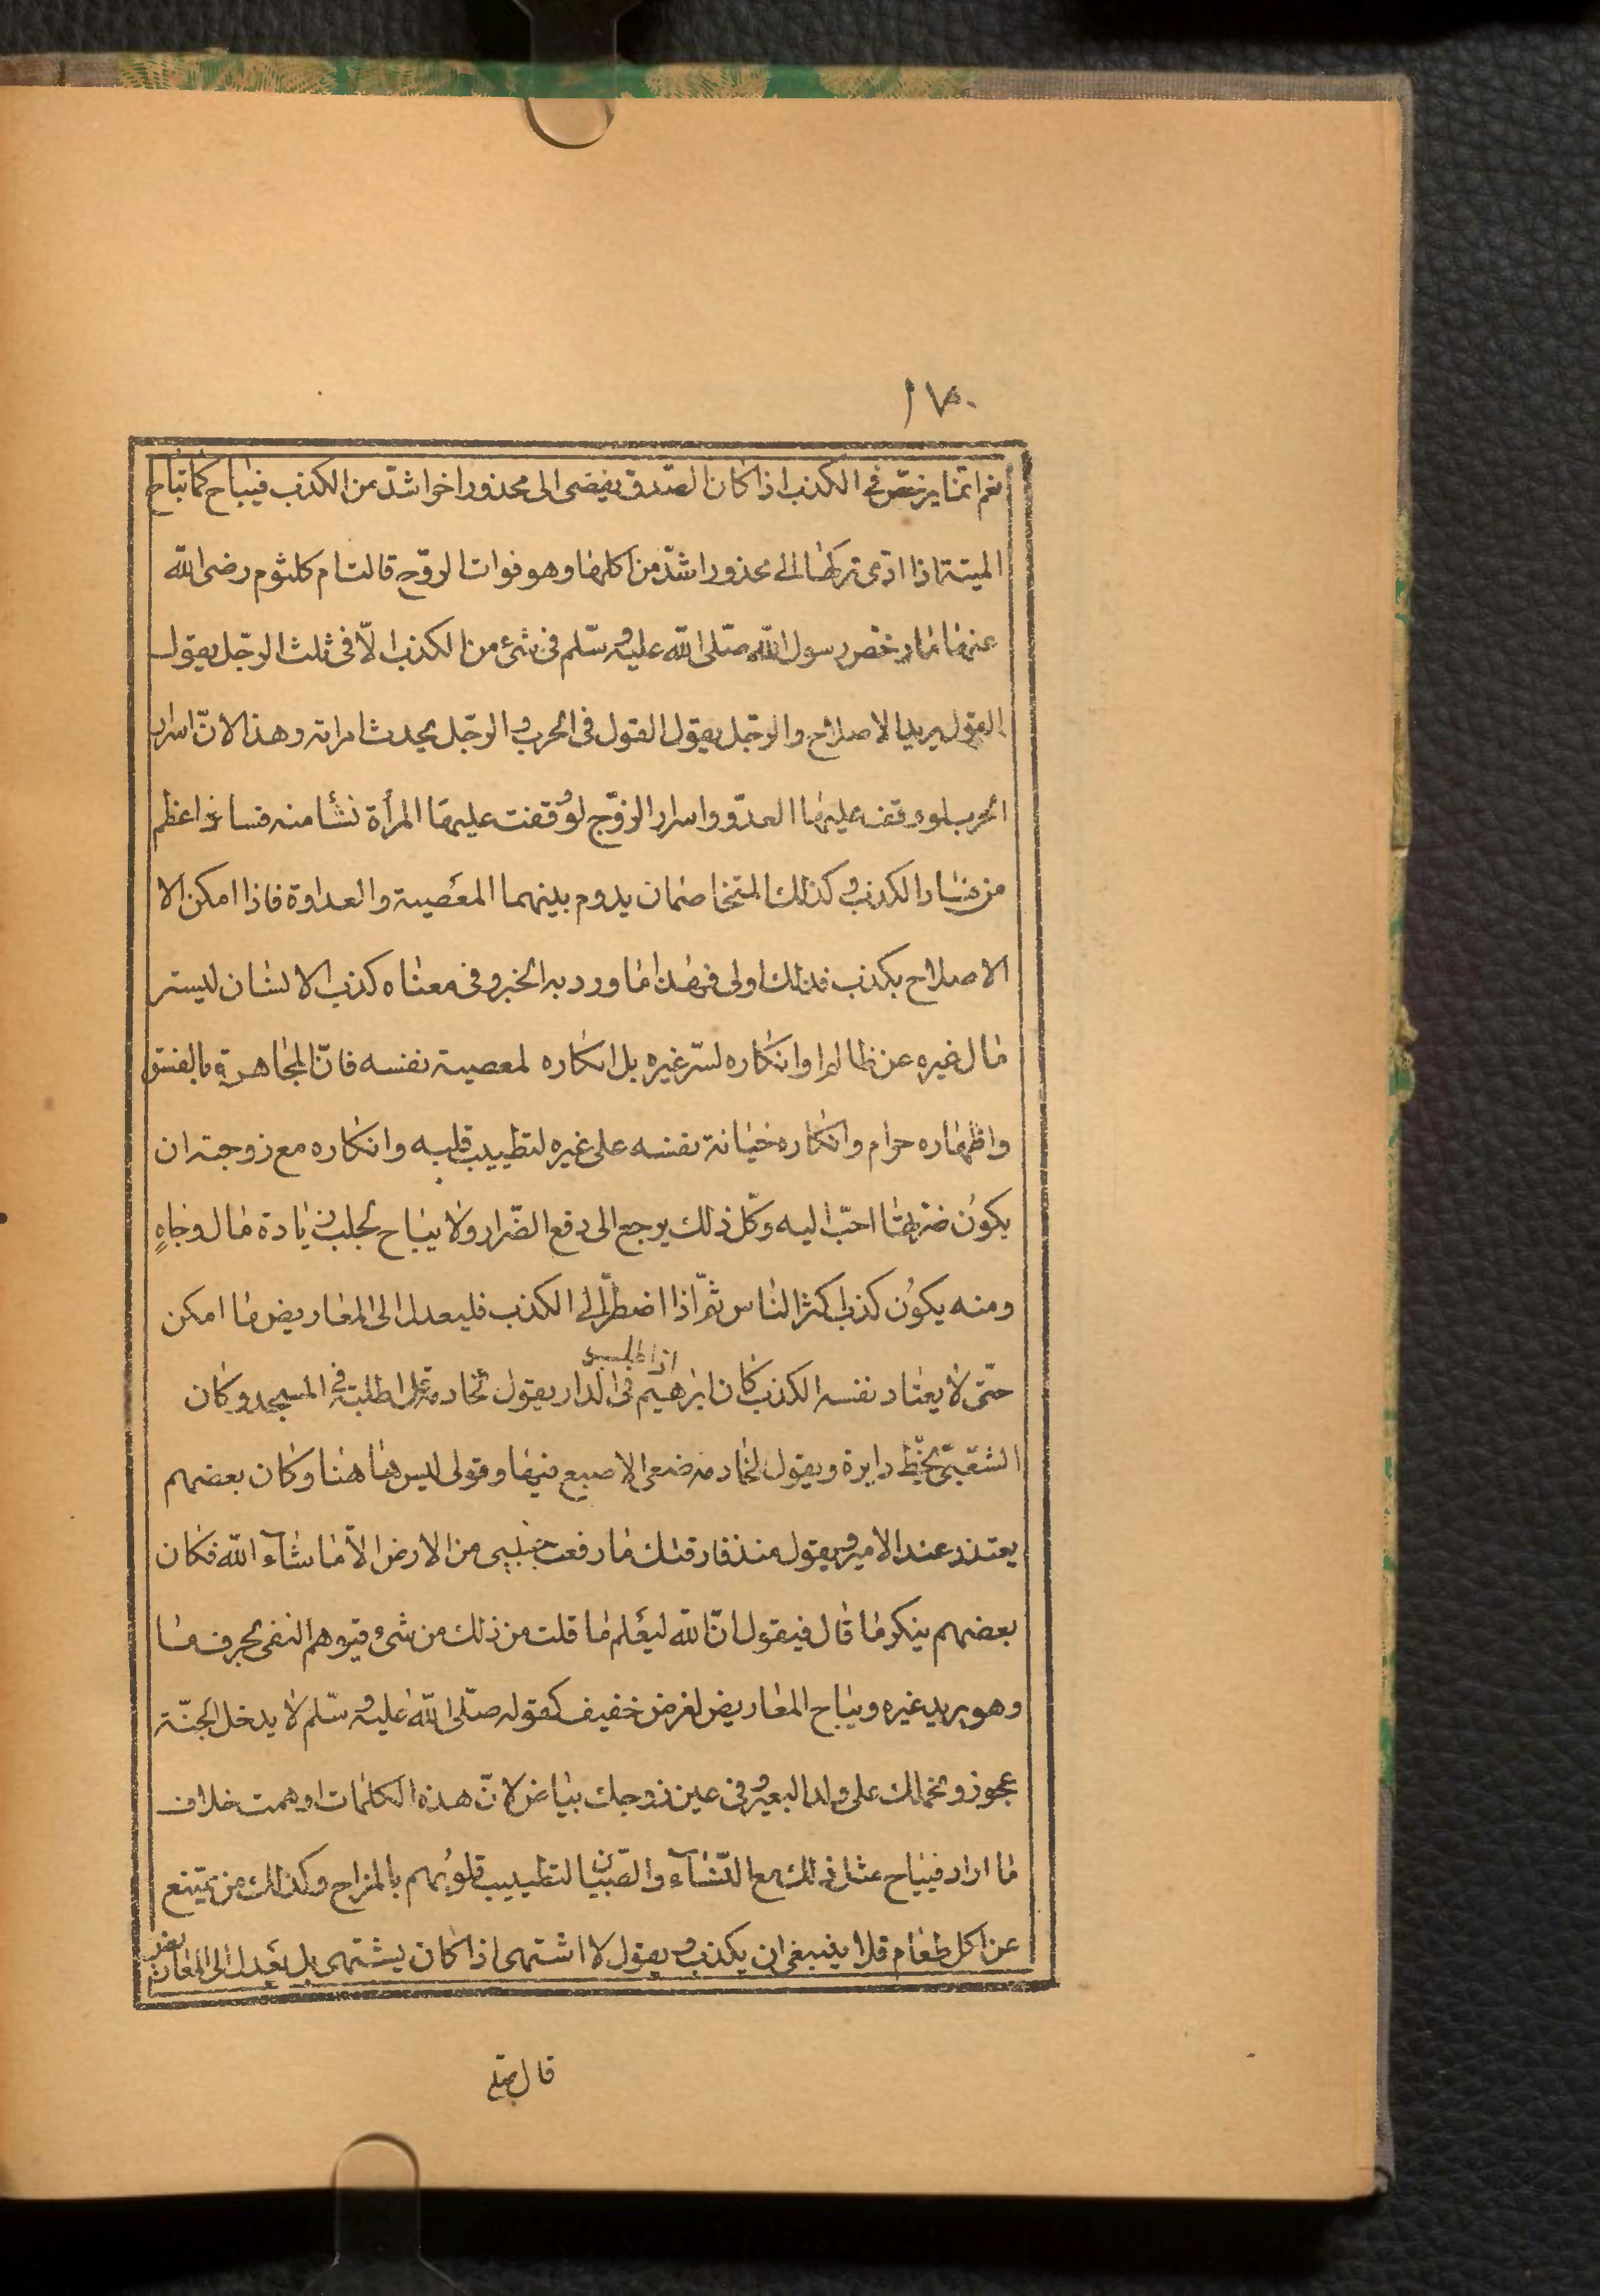 ١٧٥
نعم انّما يرخّص فى الكذب اذا كان الصّدق يفضى الى محذور اخر اشدّ من الكذب فيباح كما تباح
الميتة اذا ادّى تركها الى محذور اشدّ من اكلها وهو فوات الروّح قالت ام كلثوم رضى الله
عنها ما رخّص رسول الله صلّى الله عليه وسلّم فى شئ من الكذب الّا فى ثلث الرجّل يقول
القول يريد الاصلاح والرجّل يقول القول فى الحرب والرجّل يحدث امراته وهذا لانّ اسرار
الحرب لو وقف عليها العدوّ واسرار الزوّج لو وقفت عليها المرأة نشأ منه فساد اعظم
من فساد الكذب وكذلك المتخاصمان يدوم بينهما المعصية والعداوة فاذا امكن الا
الاصلاح بكذب فذلك اولى فهذا ما ورد به الخبر وفى معناه كذب الانسان ليستر
مال غيره عن ظالم او انكاره لسرّ غيره بل انكاره لمعصية نفسه فانّ المجاهرة بالفسق
واظهاره حرام وانكاره خيانة نفسه على غيره لتطييب قلبه وانكاره مع زوجته ان
يكون ضرتها احبّ اليه وكلّ ذلك يرجع الى دفع الضّرار ولا يباح لجلب زيادة مال وجاهٍ
ومنه يكون كذب اكثر النّاس ثمّ اذا اضطرّ الى الكذب فليعدل الى المعاريض ما امكن
حتّى لا يعتاد نفسه الكذب كان ابرهيم اذا طلب فى الدّار يقول لخادمة قل اطلبه فى المسجد وكان
الشّعبىّ يخّط دايرة ويقول لخادمه ضعى الاصبع فيها وقولى ليس هاهنا وكان بعضهم
يعتذر عند الامير ويقول منذ فارقتك ما رفعت جنبى من الارض الّا ما شآء الله فكان
بعضهم ينكر ما قال فيقول انّ الله ليعلم ما قلت من ذلك من شئ فيوهم النفى بحرف ما
وهو يريد غيره ويباح المعاريض لغرض خفيف كقوله صلّى الله عليه وسلّم لا يدخل الجنّة
عجوز ونحملك على ولد البعير وفى عين زوجك بياض لانّ هذه الكلمات اوهمت خلاف
ما اراد فيباح مثل ذلك مع النّسآء والصّبيان لتطييب قلوبهم بالمزاح وكذلك من يمتنع
عن اكل طعام فلا ينبغى ان يكذب ويقول لا اشتهى اذا كان يشتهى بل يعدل الى المعاريض
قال صلعم